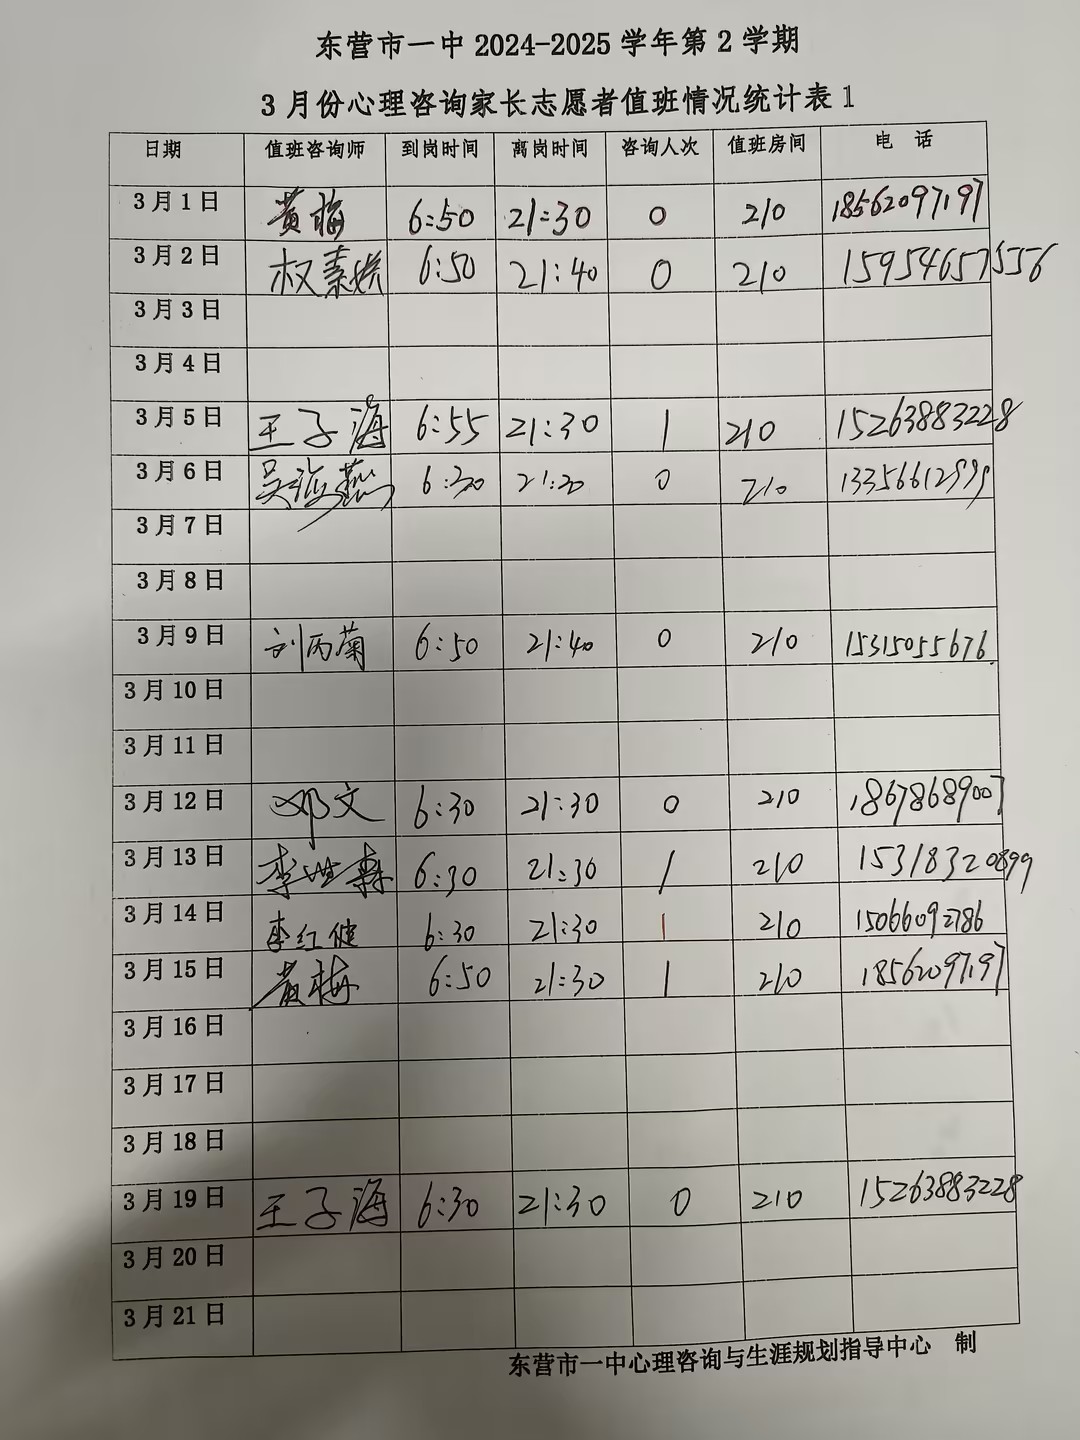 东营市一中 2024-2025 学年第 2 学期
3 月份心理咨询家长志愿者值班情况统计表 1
日期 值班咨询师 到岗时间 离岗时间 咨询人次 值班房间 电 话
3 月 1 日 黄梅 6:50 21:30 0 210 18562097197
3 月 2 日 权素 6:50 21:40 0 210
3 月 3 日
3 月 4 日
3 月 5 日 王子海 6:55 21:30 1 210 15263883228
3 月 6 日 吴海燕 6:30 21:20 0 210 13356612999
3 月 7 日
3 月 8 日
3 月 9 日 刘丙菊 6:50 21:40 0 210 15315055676
3 月 10 日
3 月 11 日
3 月 12 日 邓文 6:30 21:30 0 210 18678689007
3 月 13 日 李 6:30 21:30 1 210 15318320899
3 月 14 日 李红健 6:30 21:30 1 210 15066092786
3 月 15 日 黄梅 6:50 21:30 1 210 18562097197
3 月 16 日
3 月 17 日
3 月 18 日
3 月 19 日 王子海 6:30 21:30 0 210 15263883228
3 月 20 日
3 月 21 日
东营市一中心理咨询与生涯规划指导中心 制